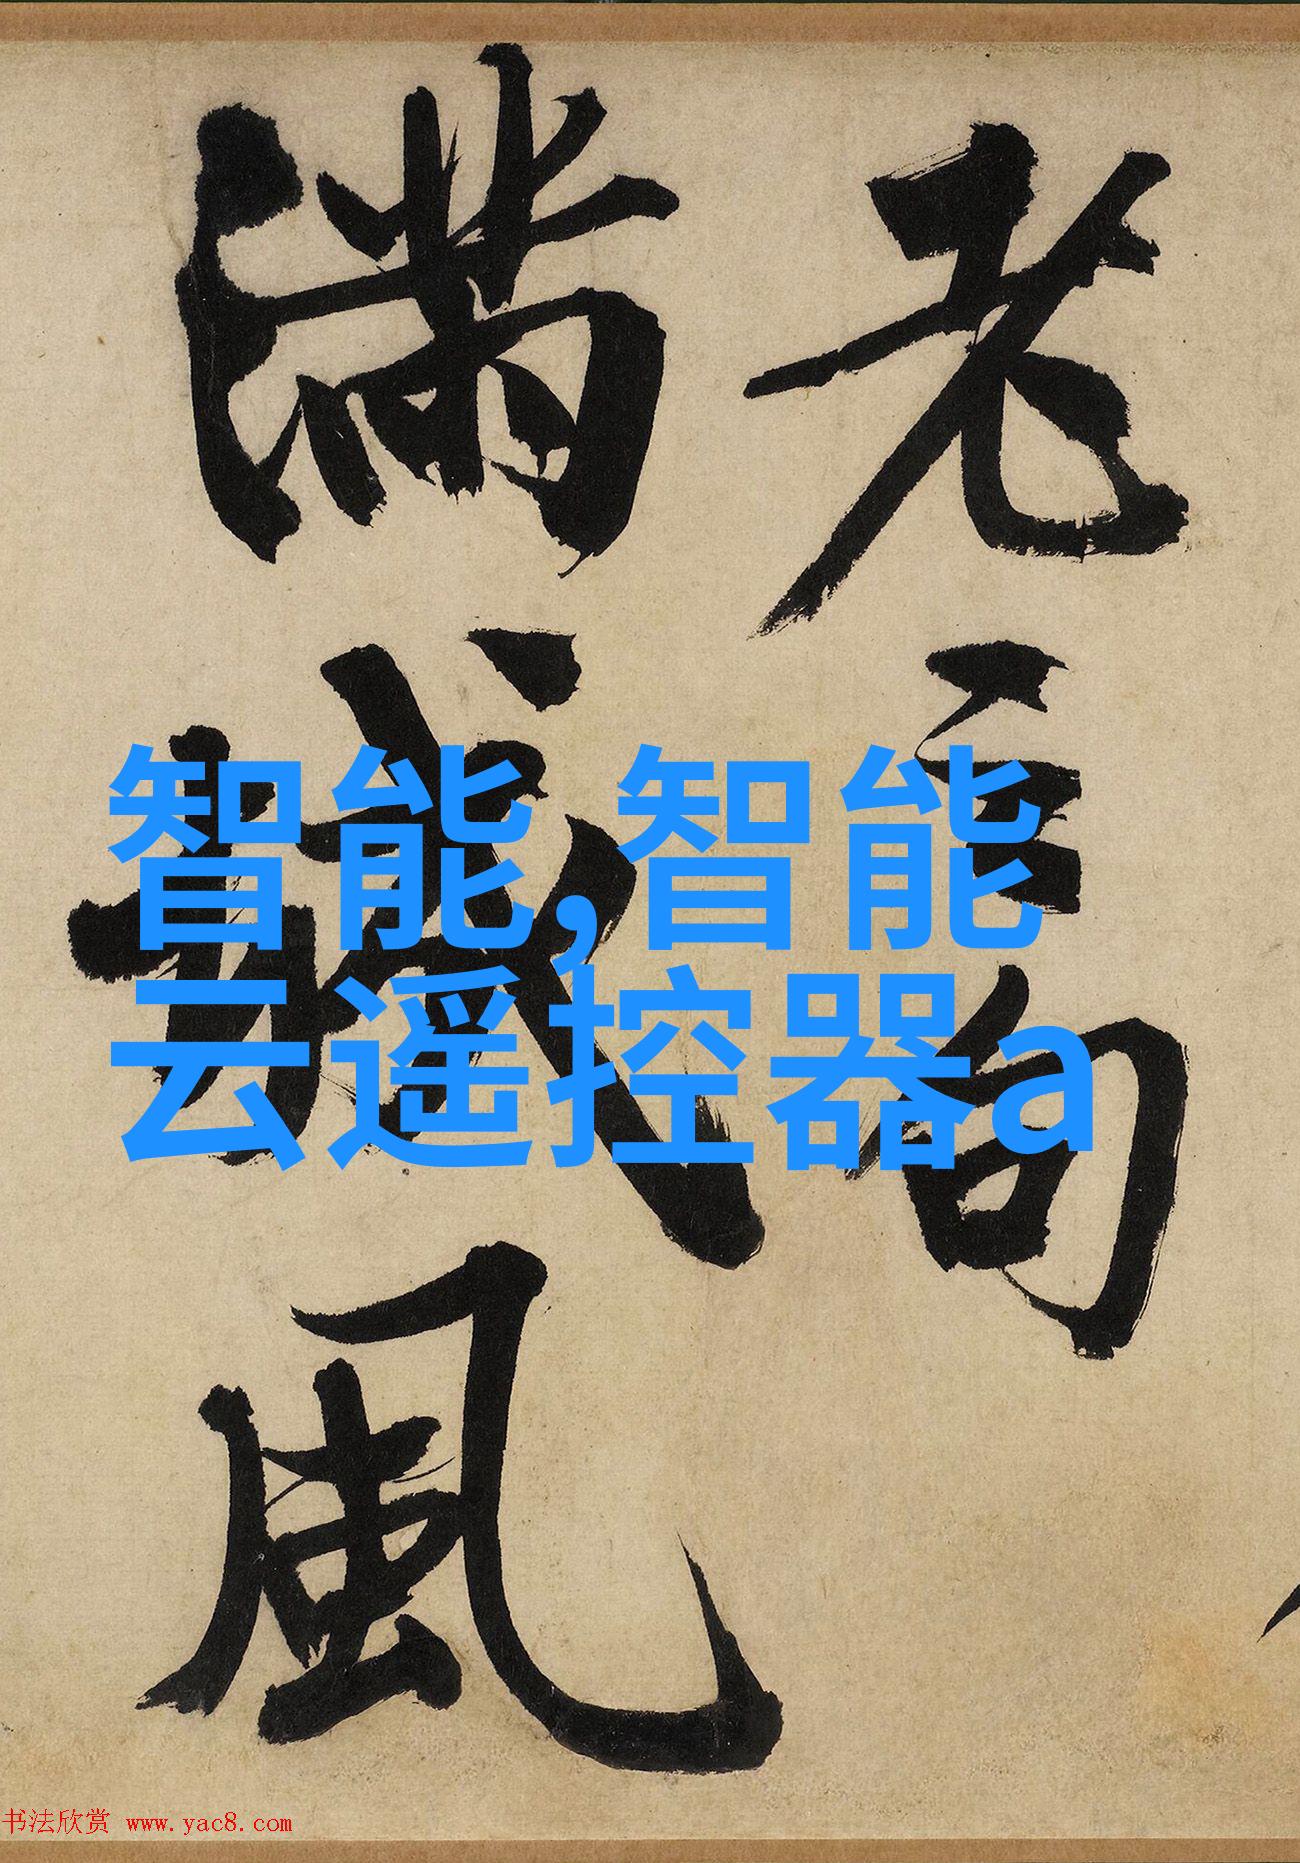 老句
滿城風
智能,智能
云遥控器a
书法欣赏 www.yac8.com